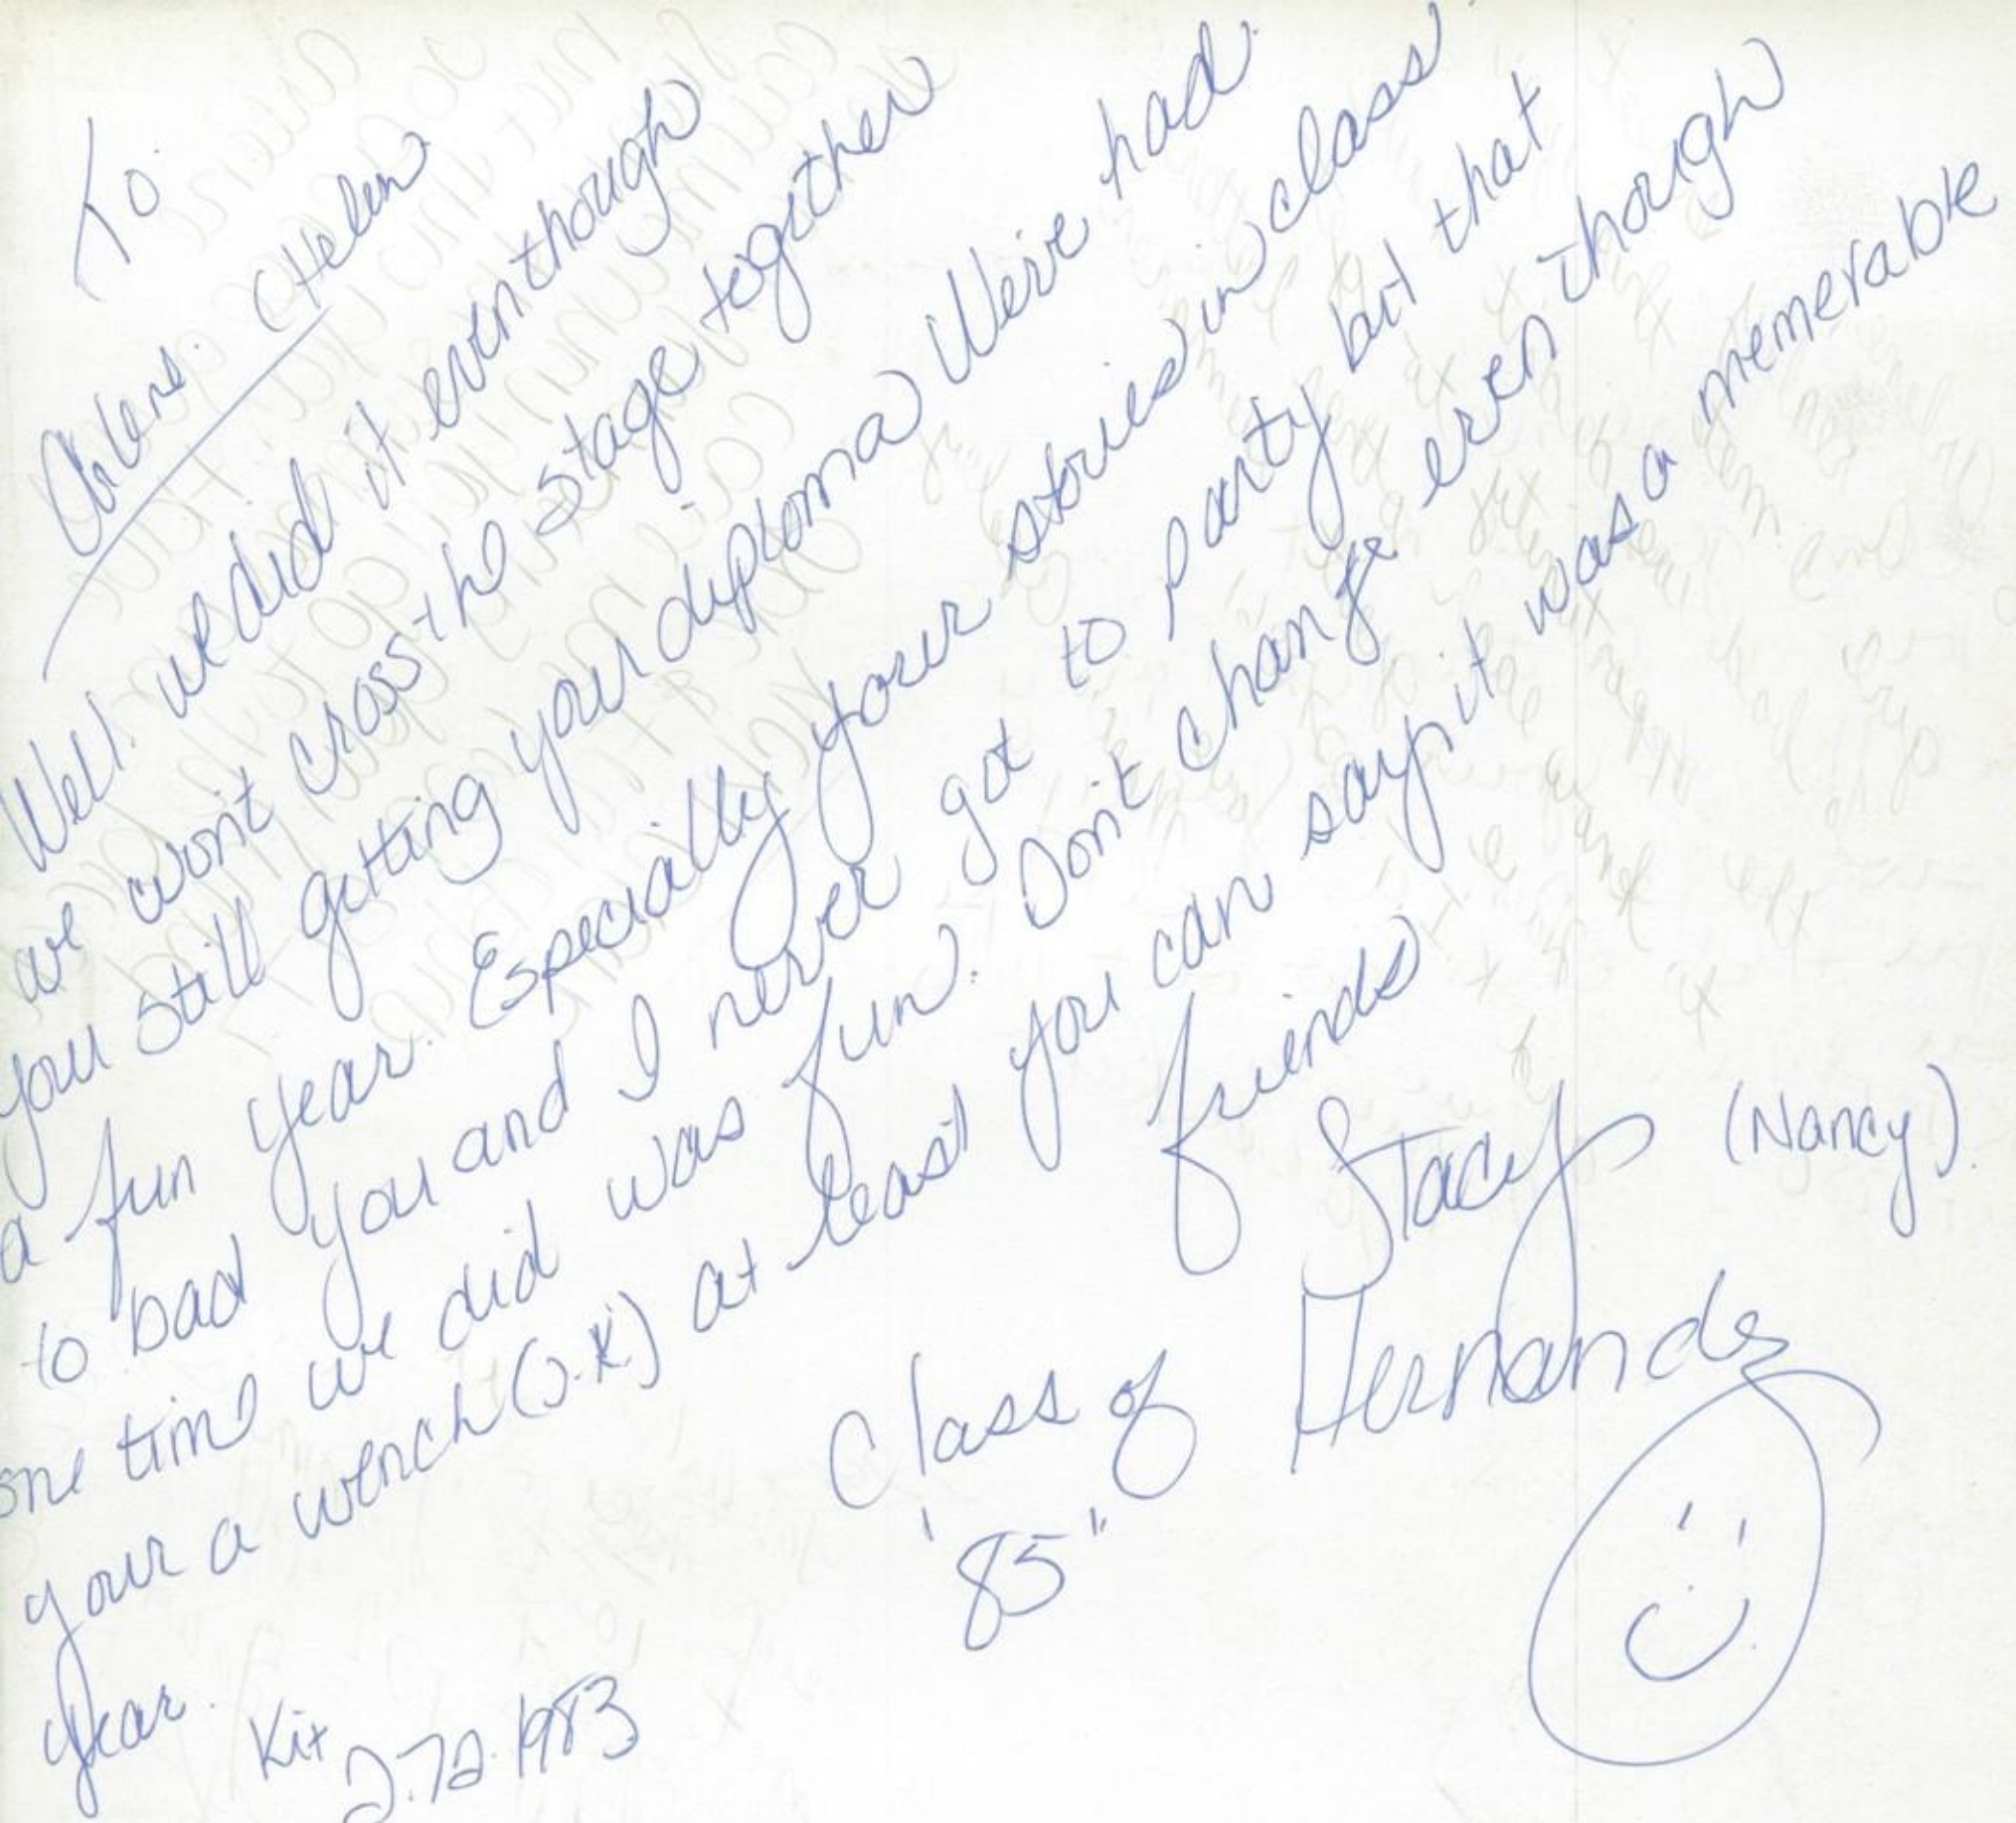 To
Arlene. (Helen)
Well. we did it eventhough
we won't cross the stage together
you still getting your diploma We've had
a fun year. Especially your stories in class
to bad you and I never got to party but that
one time we did was fun. Don't change even though
your a wench (J.K.) at least you can say it was a memerable
year.
friends
Stacy (Nancy).
Hernandez
Class of
"85"
Kit
272-1983